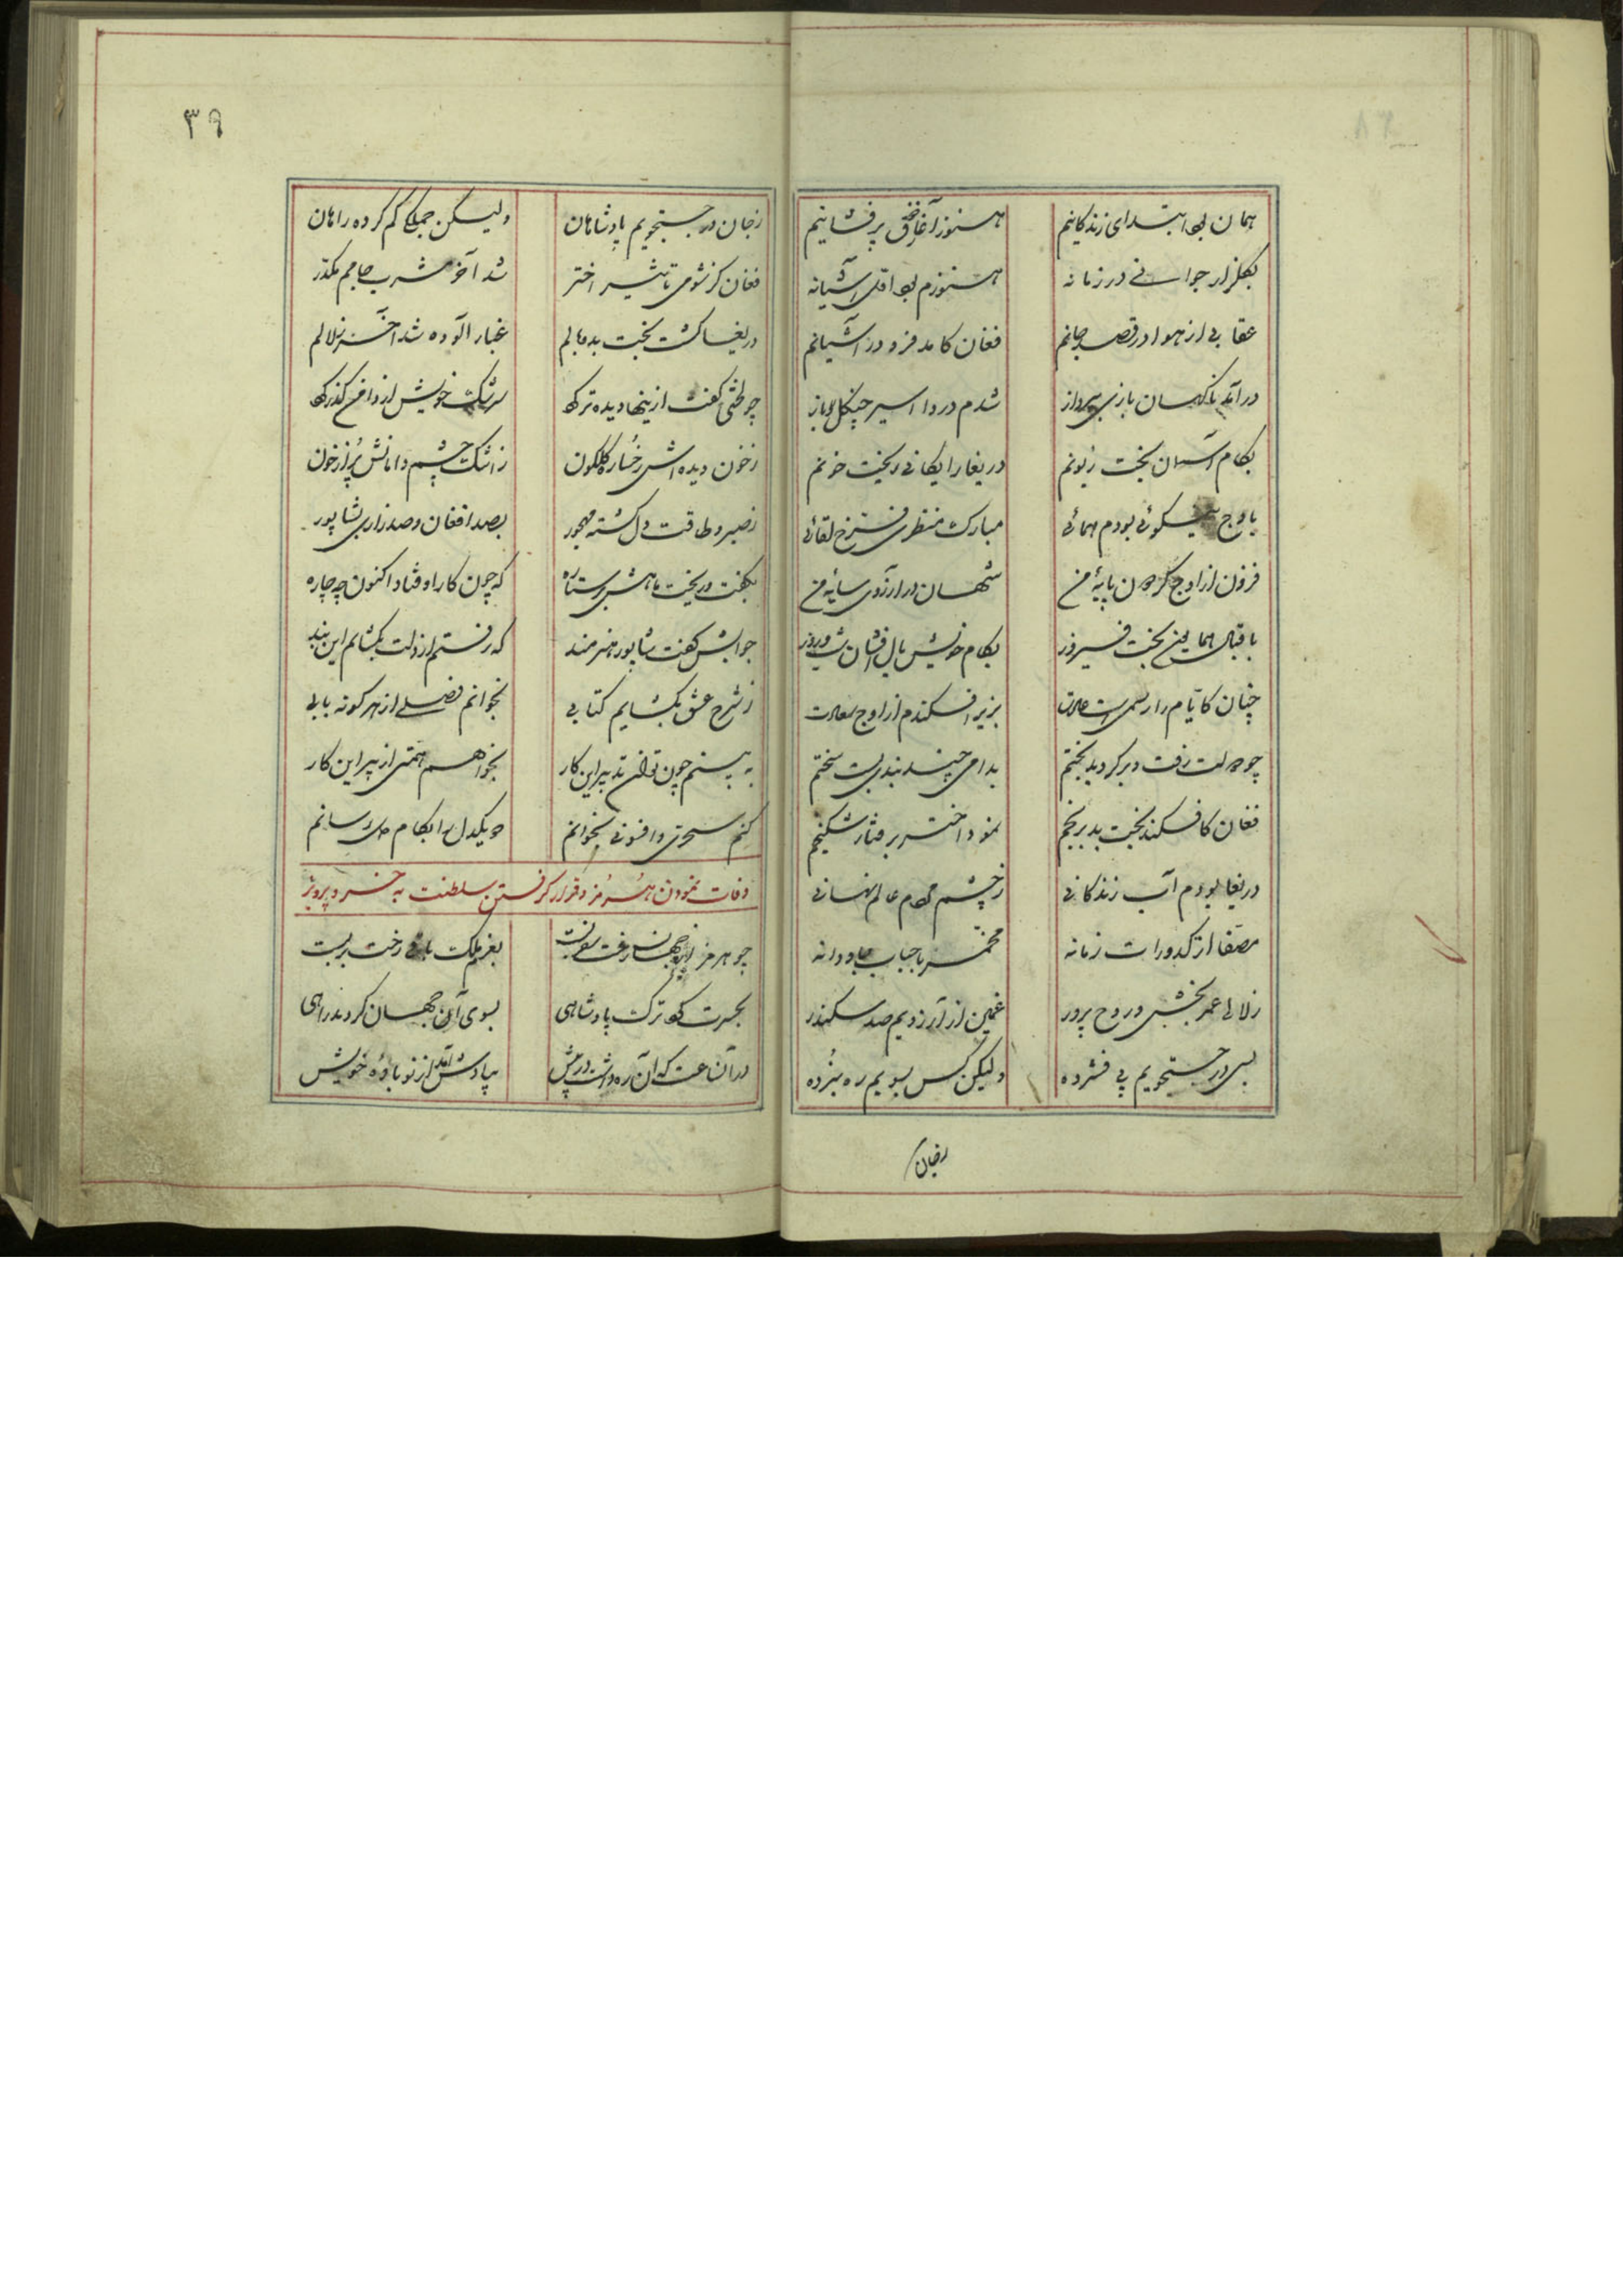 ۳۹
همان بود ابتدای زندگانیم
هنوز آغاز پر فشانیم
بگلزار جوانی در زمانه
هنوزم بود اول آشیانه
عقابی از هوا در قصد جانم
فغان کامد فرود در آشیانم
درآمد ناگهان بازی به پرواز
شدم دردا اسیر چنگل باز
بکام آسمان بخت زبونم
دریغا رایگانی ریخت خونم
باوج نیکوئی بودم همائی
مبارک منظری فرخ لقائی
فزون از اوج گردون پایهٔ من
شهان در آرزوی سایهٔ من
باقبال همایون بخت فیروز
بکام خویش بال افشان شب و روز
چنان کایام را رسمی است عادت
بزیر افکندم از اوج سعادت
چو دولت رفت و برگردید بختم
بدامی چند بندی بست سختم
فغان کافکند بخت بد برنجم
نمود اختر گرفتار شکنجم
دریغا بودم آب زندگانی
ز چشم مردم عالم نهانی
مصفا از کدورات زمانه
مخمر با حباب جاودانه
زلالی عمر بخش و روح پرور
غمین از آرزویم صد سکندر
بسی در جستجویم پی فشرده
ولیکن کس بسویم ره نبرده
ز جان در جستجویم پادشاهان
ولیکن جملگی گم کرده راهان
فغان کز شومی تاثیر اختر
شد آخر مشرب جامم مکدر
دریغا گشت بخت بد وبالم
غبار آلوده شد آخر زلالم
چو لختی گفت از اینها دیده تر کرد
سرشک خویش از دامن گذر کرد
ز خون دیده اش رخساره گلگون
ز اشک چشم دامانش پر از خون
ز صبر و طاقت دل گشته مهجور
بصد افغان و صد زاری بشاپور
بگفت و ریخت با هش بر ستاره
که چون کار اوفتاد اکنون چه چاره
جوابش گفت شاپور هنرمند
که رفتم از دلت بگشایم این بند
ز شرح عشق بگشایم کتابی
بخوانم فصلی از هر گونه بابی
به بینم چون توانم تدبیر این کار
بخواهم همتی از پیر این کار
کنم سحری و افسونی بخوانم
دو یکدل را بکام دل رسانم
وفات نمودن هرمز و قرار گرفتن سلطنت به خسرو پرویز
چو هرمز زین جهان رفت
بعزم ملک باقی رخت بر بست
بحسرت کرد ترک پادشاهی
بسوی آن جهان گردید راهی
در آن ساعت که آن ره داشت در پیش
بیادش آمد از نوباوهٔ خویش
ز جان